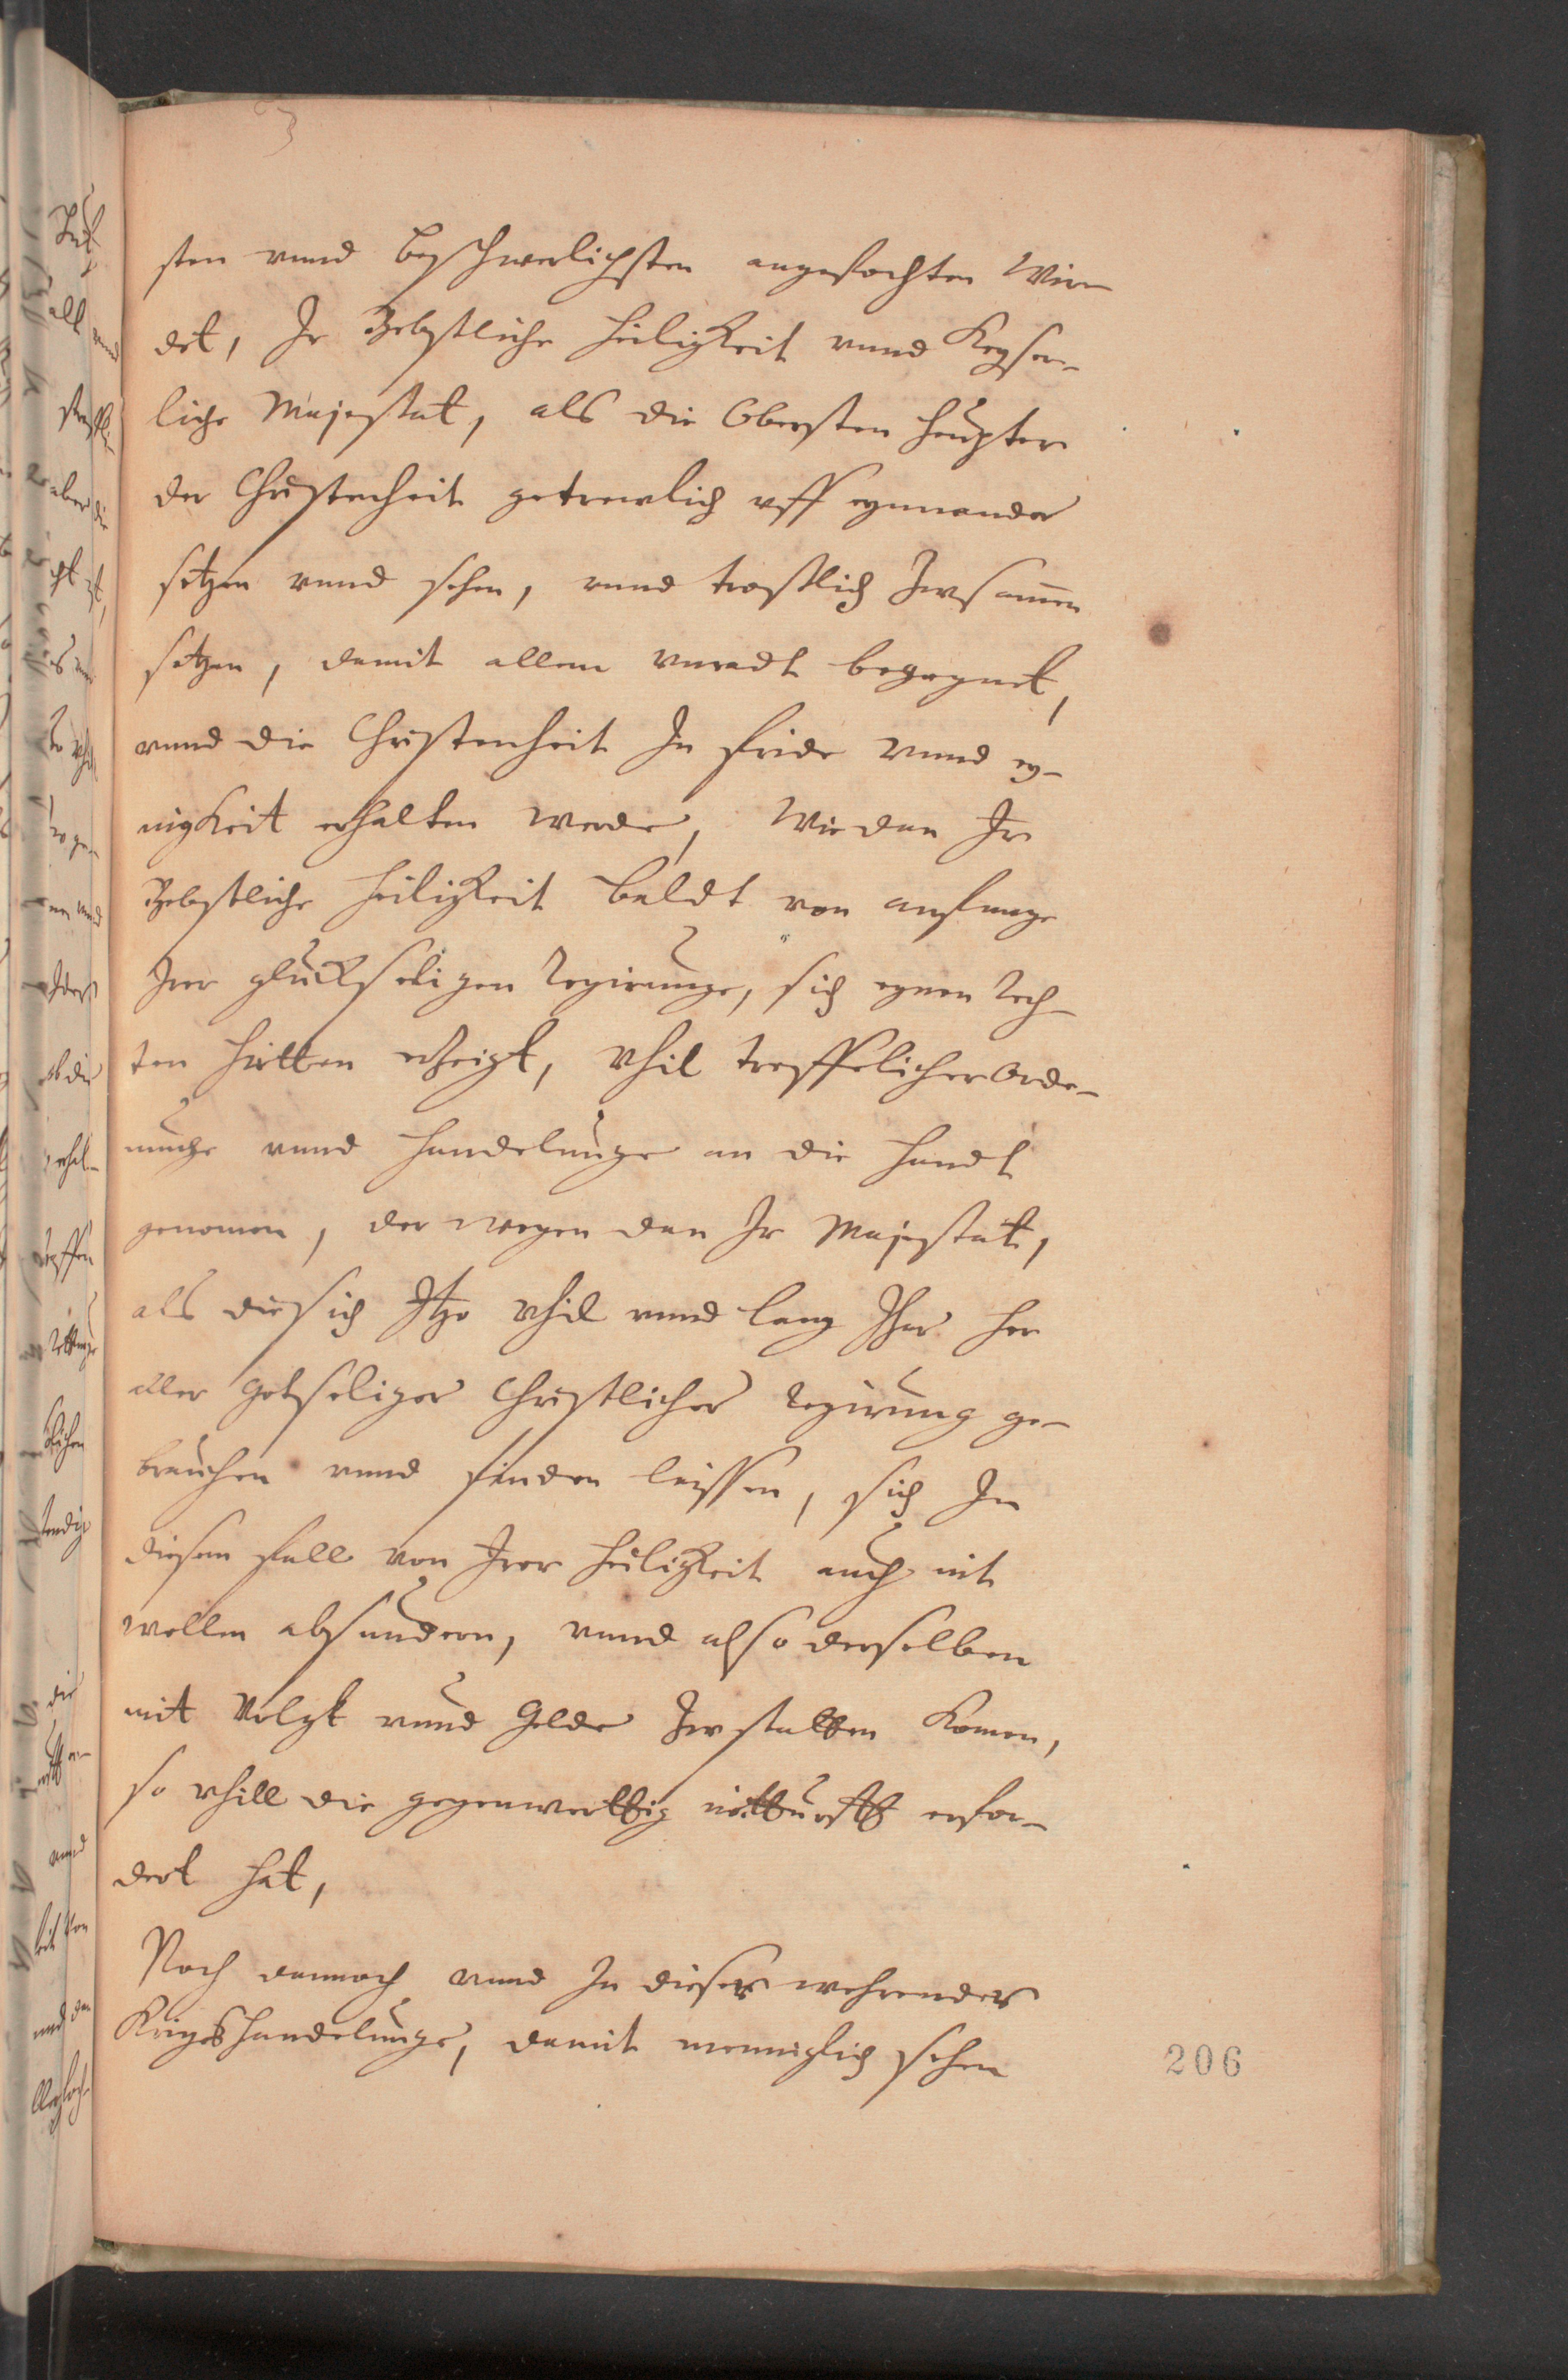 sten vnnd beschwerlichsten angefochten Wir-
det, Ir Bebstliche heiligkeit vnnd Keyser-
liche Majestat, als die Obersten heupter
der Christenheit getrewlich vff eynnander
setzen vnnd sehen, vnnd trostlich Zwsamen
setzen, damit allem vnradt begegnet,
vnnd die Christenheit In fride vnnd ey-
nigkeit erhalten werde, Wie dan Ir
Bebstliche heiligkeit baldt von anfange
Irer gluckseligen Regirunge, sich eynen Rech-
ten hirtten erzeigt, vhil treffelicher Orde-
nunge vnnd handelunge an die handt
genomen, der wegen dan Ir Majestat,
als die sich Itzo vhil vnnd lang Jhar her
aller gotseliger Christlicher Regirung ge-
brauchen vnnd finden laissen, sich In
diesem fall von Irer heiligkeit auch nit
wellen absundern, vnnd also derselben
mit Volgk vnnd Gelde Zwstatten komen,
so vhill die gegenwerttig notturfft erfor-
dert hat,
Noch dannoch vnnd In dieser wehrender
Krigshandelunge, damit menniglich sehen
206